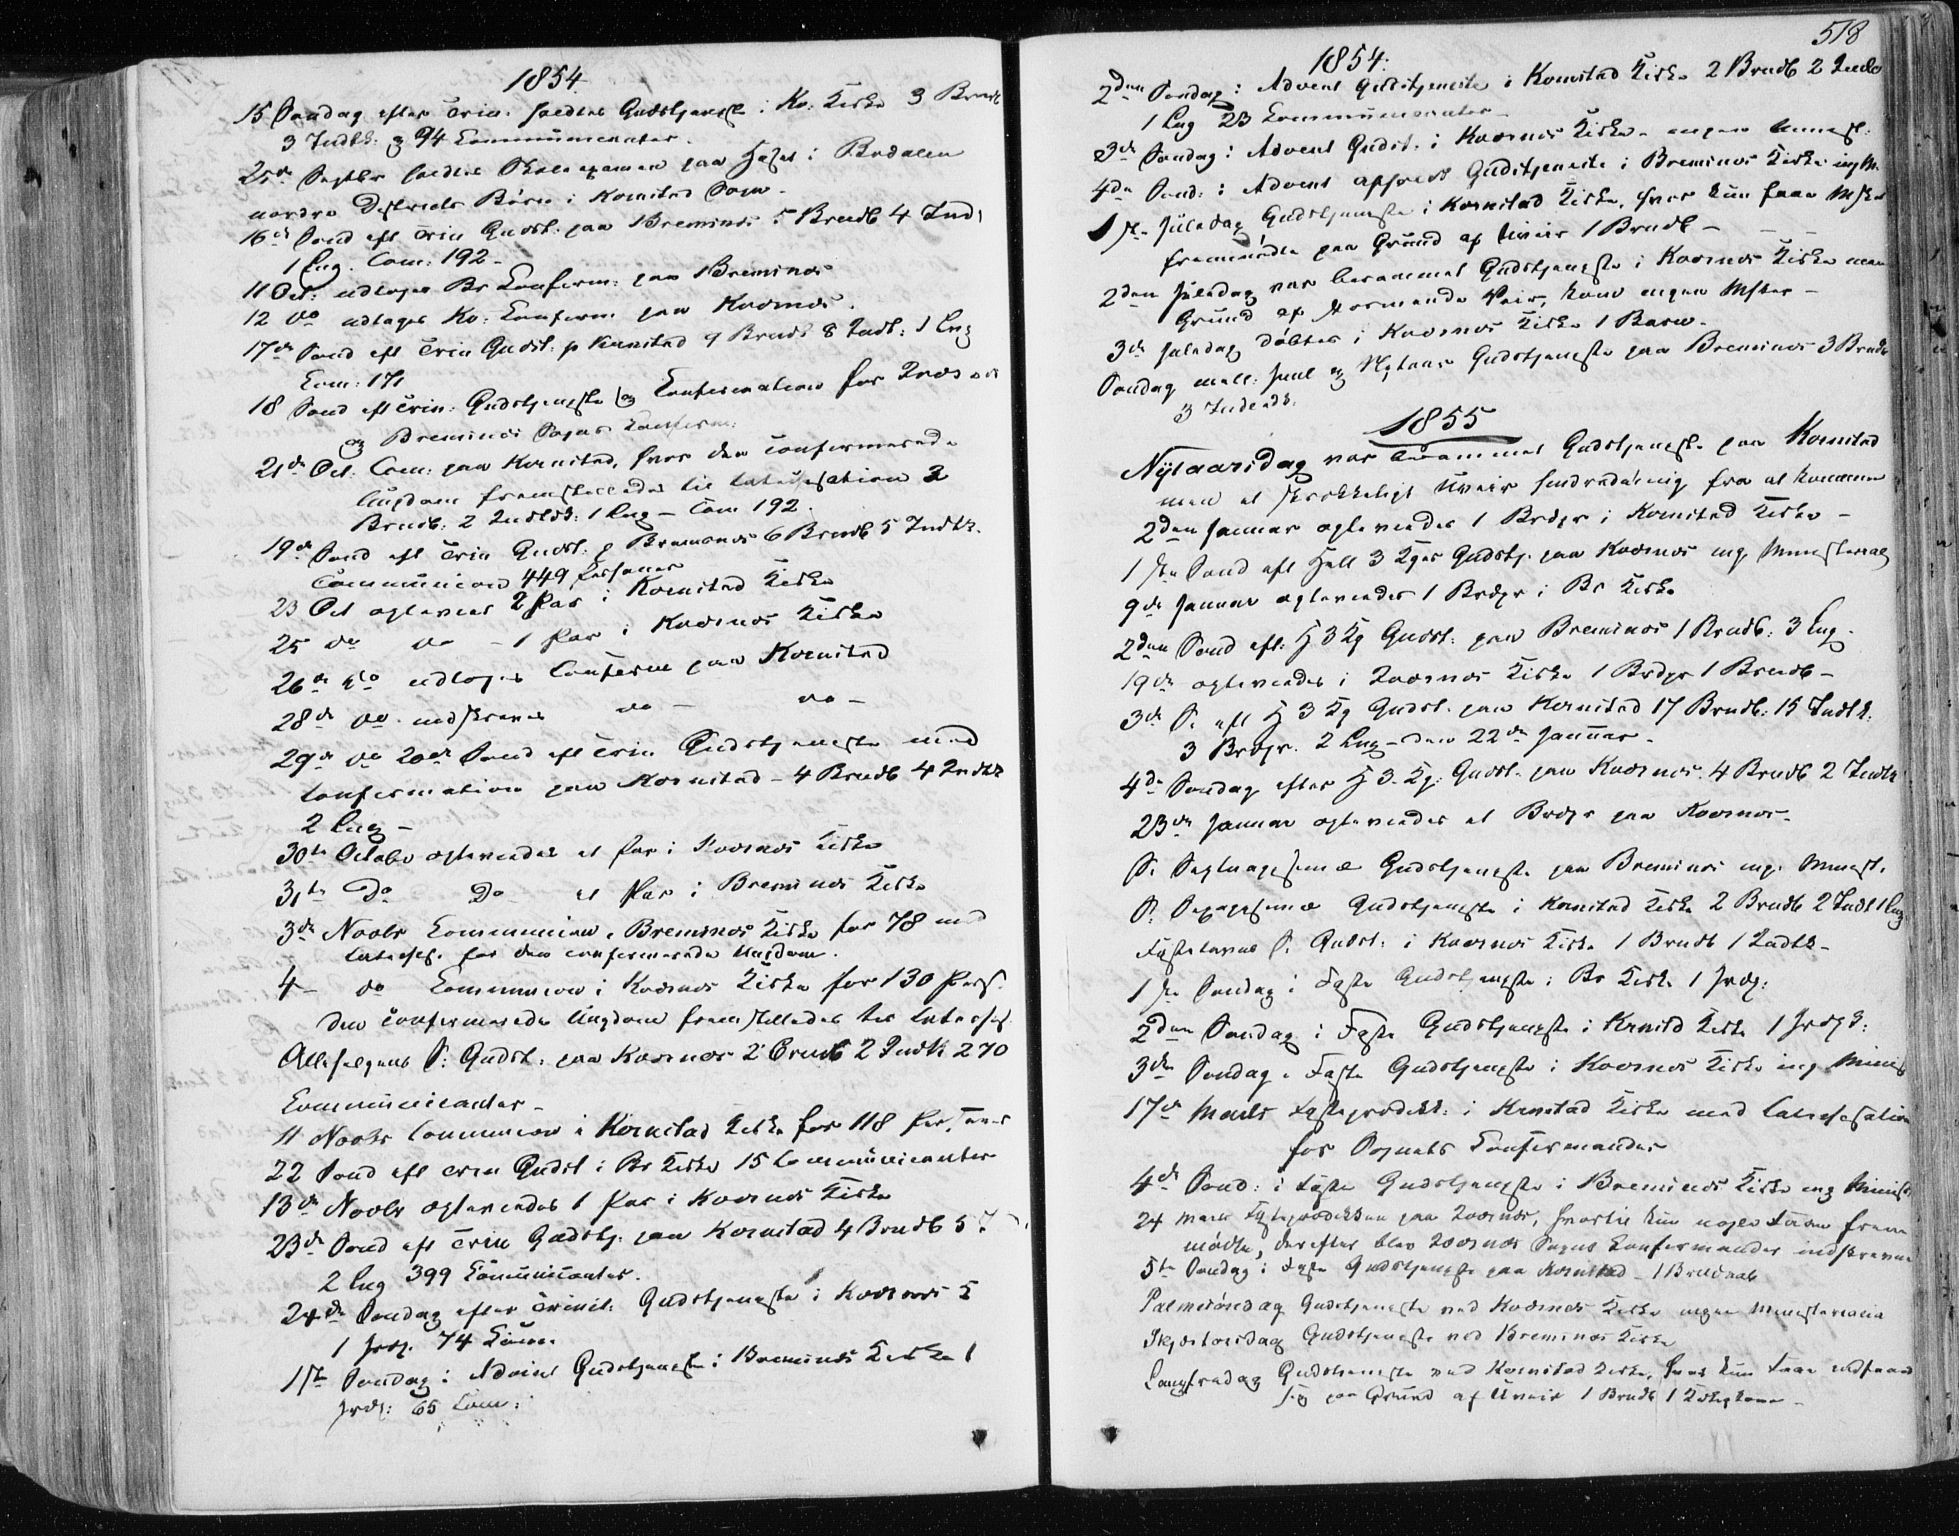 1854
15 Søndag efter Trin. holdtes Gudstjeneste i Kv: Kirke 3 Brndb
3 Indtk: & 94 Communicanter.
25de Septbr holdtes Skoleexamen paa i Bødalen
nordre Districts Børn i Kornstad Sogn -
16de Sønd eft Trin Gudst. paa Bremsnæs 5 Brndb 4 Indl
1 Ing. Com: 192 -
11 Oct: udtoges Br Conferm. paa Bremsnæs
12 do udtoges Kv: Conferm paa Kværnæs.
17de Sønd eft Trin Gudst: p Kornstad 9 Brndb 8 Indtk: 1 Ing
Com: 171
18 Sønd eft Trin: Gudstjeneste og Confirmation for Kværnæs
og Bremsnæs Sogns Conferm:
21de Oct. Com: paa Kornstad, hvor den confermerede
Ungdom fremstilledes til Catechisation 2
Brndb: 2 Indtk: 1 Ing - Com 192.
19de Sønd eft Trin Gudst. p Bremsnæs 6 Brndb 5 Indtk.
Communion 449 Personer
23 Oct ægtevied 2 Par i Kornstad Kirke
25 do do - 1 Par i Kværnæs Kirke
26de do udtoges Conferm paa Kornstad
28de do. indskreves do - do -
29de do 20de Sønd eft Trin Gudstjeneste med
Confirmation paa Kornstad - 4 Brndb 4 Indtk
2 Ing -
30te Octobr ægteviedes et Par i Kværnæs Kirke
31te Do Do et Par i Bremsnæs Kirke
3de Novbr Communion i Bremsnæs Kirke for 78 med
Cateches. for den confermerede Ungdom.
4 - do Communion i Kværnæs Kirke for 130 Pers.
den confermerede Ungdom fremstilledes til Cateches.
Allehelgens S: Gudst: paa Kværnæs 2 Brndb 2 Indtk 270
Communicanter -
11 Novbr Communion i Kornstad Kirke for 118 Personer
22 Sønd eft Trin Gudst i Br Kirke 15 Communicanter
13de Novbr ægteviedes 1 Par i Kværnæs Kirke
23de Sønd eft Trin Gudstj. paa Kornstad 4 Brndb 5
2 Ing 399 Communicanter.
24de Søndag efter Trinit: Gudstjeneste i Kværnæs 5
1 74 Com.
1ste Søndag i Advent Gudstjeneste i Bremsnæs Kirke 1
65 Com:
518
1854.
2den Søndag i Advent Gudstjeneste i Kornstad Kirke 2 Brndb 2 Indtk
1 Ing 23 Communicanter -
3de Søndag i Advent Gudst. i Kværnæs Kirke - ingen Minist:
4de Sønd: i Advent afholdt Gudstjeneste i Bremsnæs Kirke ing M.
1ste Juledag Gudstjeneste i Kornstad Kirke, hvor kun faa Msker
fremmødte paa Grund af Uveir 1 Brndb -
2den Juledag var berammet Gudstjeneste i Kværnæs Kirke men
Grund af stormende Veir, kom ingen Msker -
3de Juledag døbtes i Kværnæs Kirke 1 Barn -
Søndag mell: Juul og Nytaar Gudstjeneste paa Bremsnæs 3 Brndb
3 Indtk.
1855
Nytaarsdag var berammet Gudstjeneste paa Kornstad
men et skrækkeligt Uveir hindrede mig fra at komme
2den Januar ægteviedes 1 Brdpr i Kornstad Kirke -
1ste Sønd eft Hell 3 Kger Gudstj. paa Kværnæs ing. Ministerial
9de Januar ægteviedes 1 Brdpr i Br Kirke
2den Sønd eft: H 3 Kg Gudst: paa Bremsnæs 1 Brndb: 3 Ing.
19de ægteviedes i Kværnæs Kirke 1 Brdpr 1 Brndb -
3de S. eft H 3 Kg Gudst. paa Kornstad 17 Brndb: 15 Indtk:
3 Brdpr. 2 Ing - den 22de Januar -
4de Søndag efter H 3 Kg: Gudst. paa Kværnæs 4 Brndb 2 Indtk
23de Januar ægteviedes et Brdpr paa Kværnæs -
S. Septuagesima Gudstjeneste paa Bremsnæs ing. Minist.
S. Sexagesima Gudstjeneste i Kornstad Kirke 2 Brndb 2 Indt 1 Ing
Fastelavns S. Gudst: i Kværnæs Kirke 1 Brndb 1 Indtk -
1ste Søndag i Faste Gudstjeneste i Br Kirke 1
2den Søndag i Faste Gudstjeneste i Krnstd Kirke 1
3de Søndag i Faste Gudstjeneste i Kværnæs Kirke ing Minis
17de Marts Fasteprædik: i Krnstad Kirke med Catechisation
for Sognets Confirmander
4de Sønd: i Faste Gudstjeneste i Bremsnæs Kirke ing Minist
24 Marts Fasteprædiken paa Kværnæs, hvortil kun nogle faae frem
mødte, derefter blev Kværnæs Sogns Confirmander indskrevne
5te Søndag i Faste Gudstjeneste paa Kornstad - 1 Brndaab
Palmesøndag Gudstjeneste ved Kværnæs Kirke ingen Ministerialia
Skjærtorsdag Gudstjeneste ved Bremsnæs Kirke
Langfredag Gudstjeneste ved Kornstad Kirke, hvor kun faae indfandt
sig paa Grund af Uveir 1 Brndb 1 -